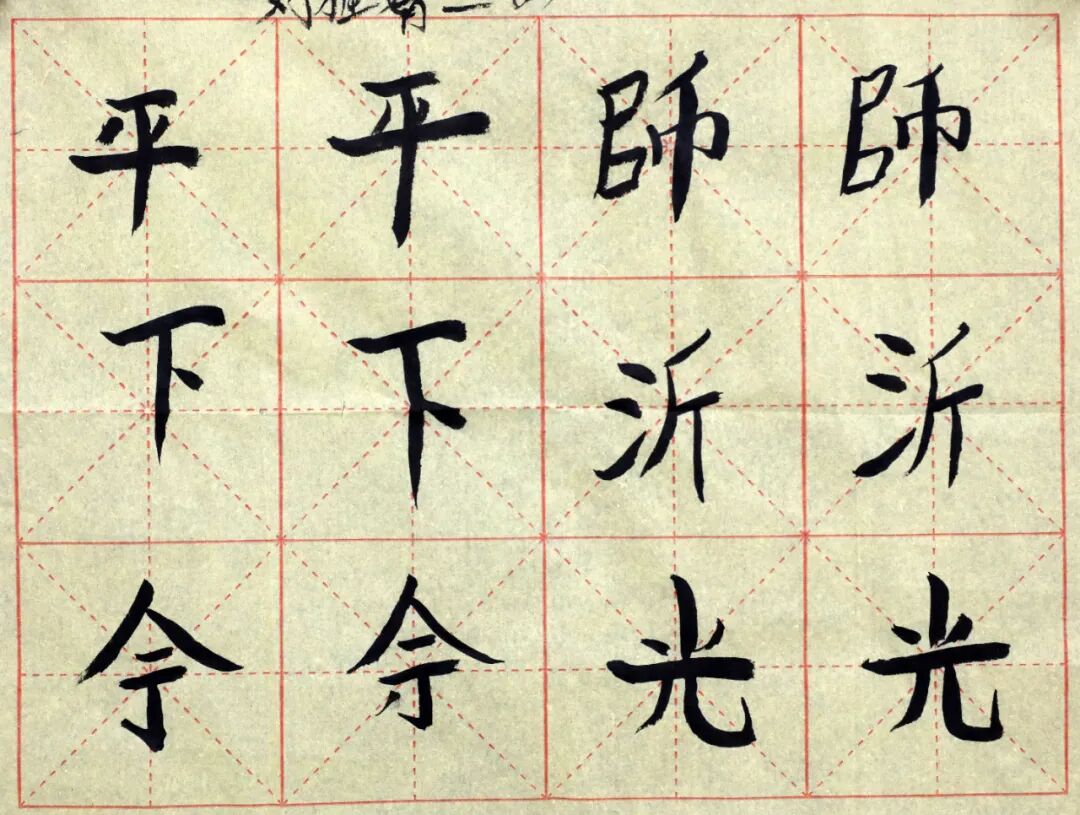 平平師師
下下沂沂
令令光光